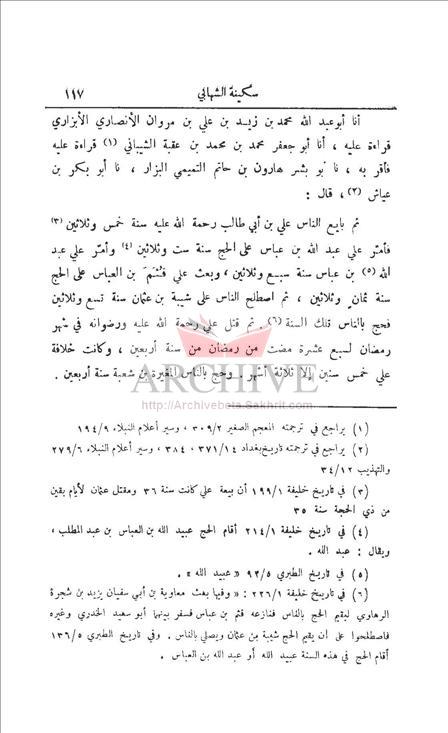 سكينة الشهابي ١١٧
أنا أبو عبد الله محمد بن زيد بن علي بن مروان الأنصاري الأبزاري
قراءة عليه ، أنا أبو جعفر محمد بن محمد بن عقبة الشيباني (١) قراءة عليه
فأقر به ، نا بو بشر هارون بن حاتم التميمي البزار ، نا أبو بكر بن
عياش (٢) ، قال :
ثم بايع الناس علي بن أبي طالب رحمة الله عليه سنة خمس وثلاثين (٣)
فأمّر علي عبد الله بن عباس على الحج سنة ست وثلاثين (٤) وأمّر علي عبد
الله (٥) بن عباس سنة سبع وثلاثين ، وبعث علي قثم بن العباس على الحج
سنة ثمان وثلاثين ، ثم اصطلح الناس على شيبة بن عثمان سنة تسع وثلاثين
فحج بالناس تلك السنة (٦) . ثم قتل علي رحمة الله عليه ورضوانه في شهر
رمضان لسبع عشرة مضت من رمضان من سنة أربعين ، وكانت خلافة
علي خمس سنين إلا ثلاثة أشهر . وحج بالناس المغيرة بن شعبة سنة أربعين .
ARCHIVE
http://Archivebeta.Sakhrit.com
(١) يراجع في ترجمته المعجم الصغير ٣٠٩/٢ ، وسير أعلام النبلاء ١٩٤/٩
(٢) يراجع في ترجمته تاريخ بغداد ٣٧١/١٤ ، ٣٨٤ ، وسير أعلام النبلاء ٢٧٩/٦
والتهذيب ٣٤/١٢
(٣) في تاريخ خليفة ١٩٩/١ أن بيعة علي كانت سنة ٣٦ ومقتل عثمان لأيام بقين
من ذي الحجة سنة ٣٥
(٤) في تاريخ خليفة ٢١٤/١ أقام الحج عبيد الله بن العباس بن عبد المطلب ،
ويقال : عبد الله .
(٥) في تاريخ الطبري ٩٣/٥ « عبيد الله » .
(٦) في تاريخ خليفة ٢٢٦/١ : « وفيها بعث معاوية بن أبي سفيان يزيد بن شجرة
الرهاوي ليقيم الحج بالناس فنازعه قثم بن عباس فسفر بينهما أبو سعيد الخدري وغيره
فاصطلحوا على أن يقيم الحج شيبة بن عثمان ويصلي بالناس . وفي تاريخ الطبري ١٣٦/٥
أقام الحج في هذه السنة عبيد الله أو عبد الله بن العباس .